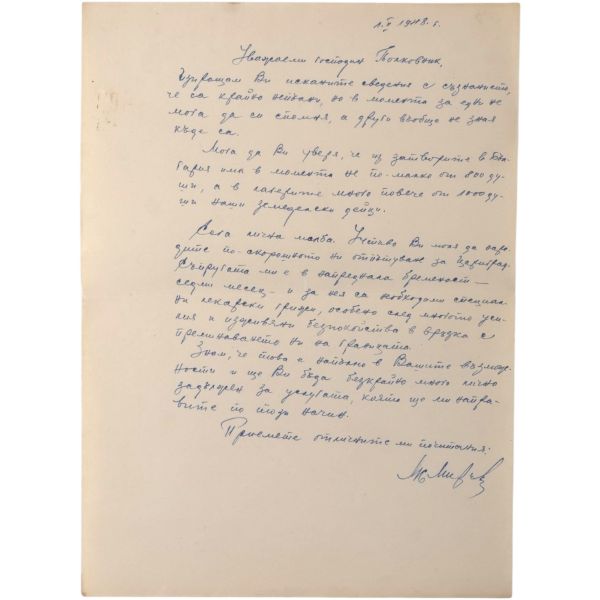 1.V 1948 г.
Уважаеми Господин Полковник,
Изпращам Ви исканите сведения с съзнанието,
че са крайно непълни, но в момента за едни не
мога да си спомня, а други въобще не зная
къде са.
Мога да Ви уверя, че из затворите в Бъл-
гария има в момента не по-малко от 800 ду-
ши, а в лагерите много повече от 1000 ду-
ши наши земеделски дейци.
Сега лична молба. Учтиво Ви моля да наре-
дите по-скорошното ни отпътуване за Цариград.
Съпругата ми е в напреднала бременост –
седми месец – и за нея са необходими специал-
ни лекарски грижи, особено след многото уси-
лия и изживяни безпокойства в връзка с
преминаването ни на границата.
Зная, че това е напълно в Вашите възмож-
ности и ще Ви бъда безкрайно много лично
задължен за услугата, която ще ми напра-
вите по този начин.
Приемете отличните ми почитания: